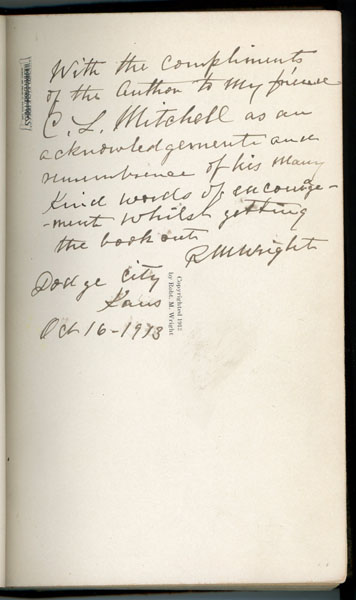 With the compliments
of the Author to My friend
C. L. Mitchell as an
acknowledgement and
remembrance of his many
Kind words of encourige-
-ment whilst getting
the book out
R M Wright
Dodge City
Kans
Oct 16-1913
Copyrighted 1913
by Robt. M. Wright